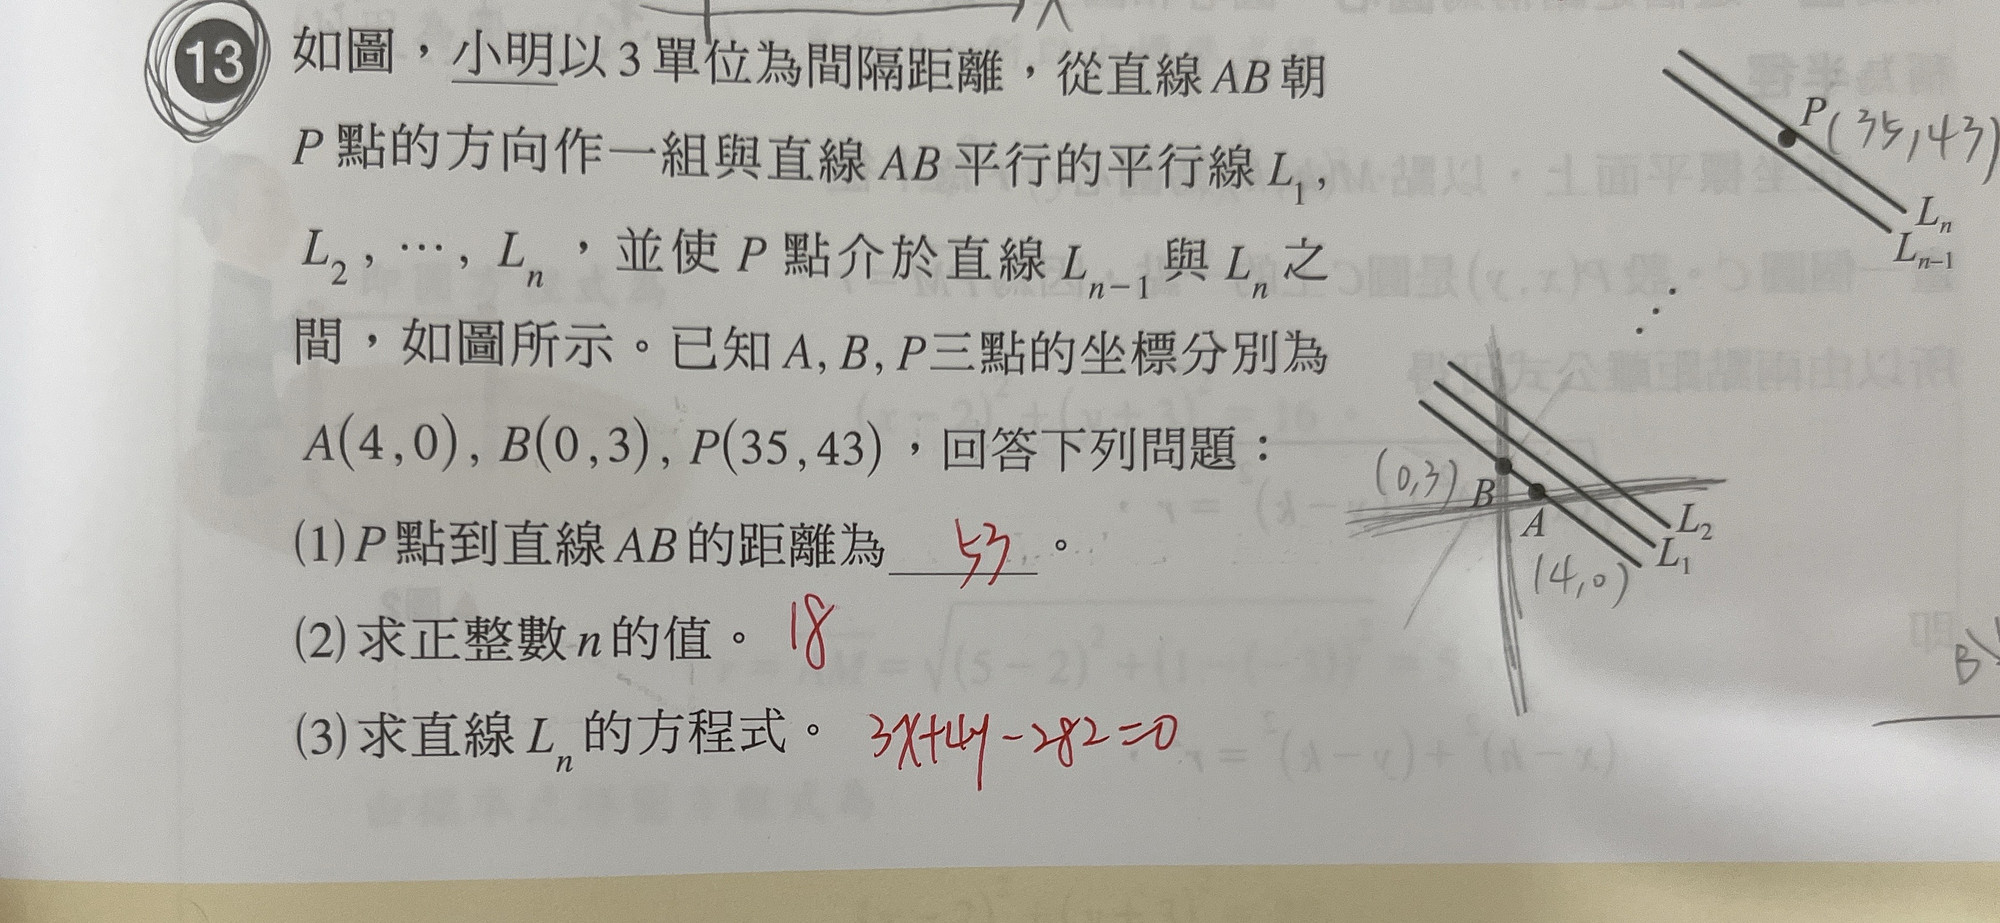 13 如圖，小明以3單位為間隔距離，從直線AB朝
P點的方向作一組與直線AB平行的平行線L₁,
L₂, ⋯, Lₙ，並使P點介於直線Lₙ₋₁與Lₙ之
間，如圖所示。已知A, B, P三點的坐標分別為
A(4,0), B(0,3), P(35,43)，回答下列問題：
(1)P點到直線AB的距離為 53 。
(2)求正整數n的值。 18
(3)求直線Lₙ的方程式。 3x+4y-282=0
X
P(35,43)
Lₙ
Lₙ₋₁
(0,3) B
A
L₂
L₁
(4,0)
B